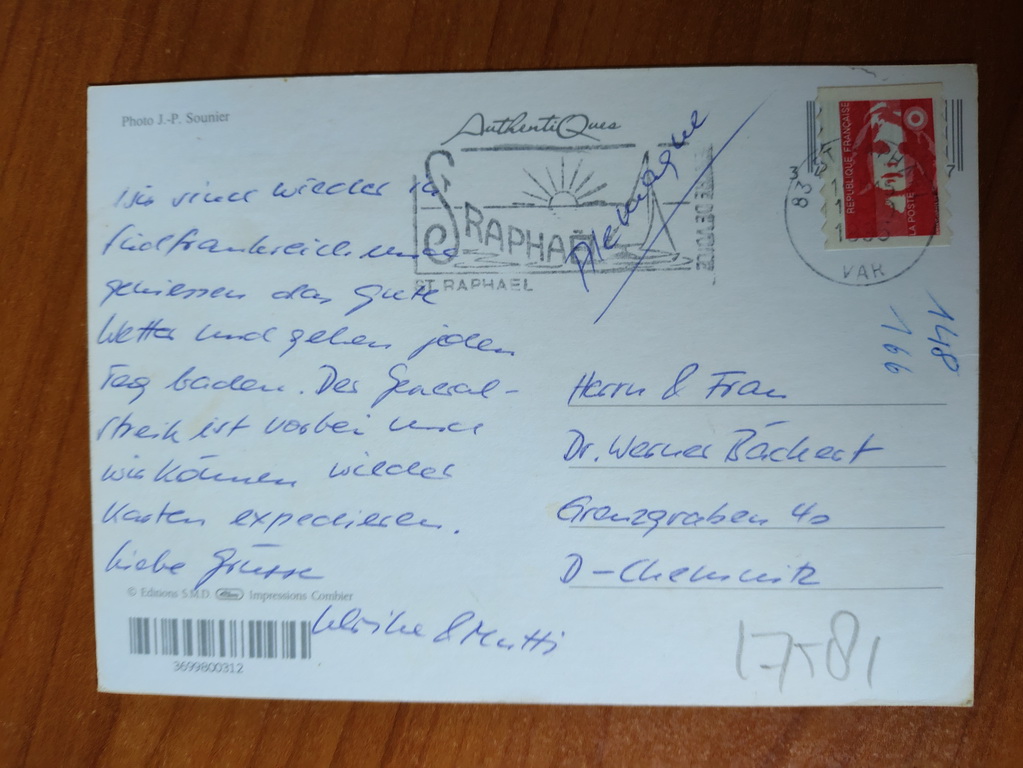 Photo J.-P. Sounier
AuthentiQues
St RAPHAËL
ST. RAPHAEL
Allemagne
REPUBLIQUE FRANÇAISE
LA POSTE
83
VAR
Wir sind wieder in
Südfrankreich und
geniessen das gute
Wetter und gehen jeden
Tag baden. Der General-
streik ist vorbei und
wir können wieder
Karten expedieren.
Liebe Grüsse
Ulrike & Mutti
166
148
Herrn & Frau
Dr. Werner Bächert
Grenzgraben 40
D-Chemnitz
© Editions S.M.D. Impressions Combier
3699800312